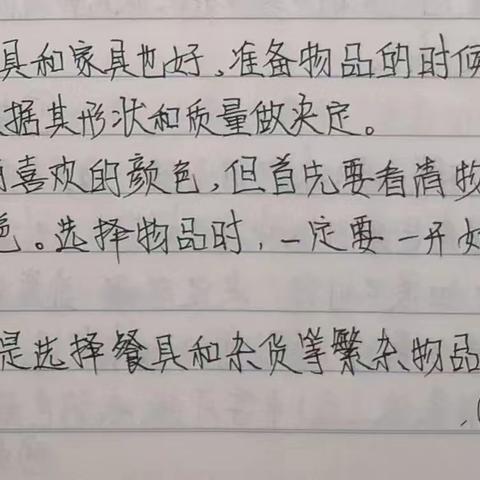 具和家具也好，准备物品的时候
据其形状和质量做决定。
喜欢的颜色，但首先要看清物
色。选择物品时，一定要一开始
是选择餐具和杂货等繁杂物品